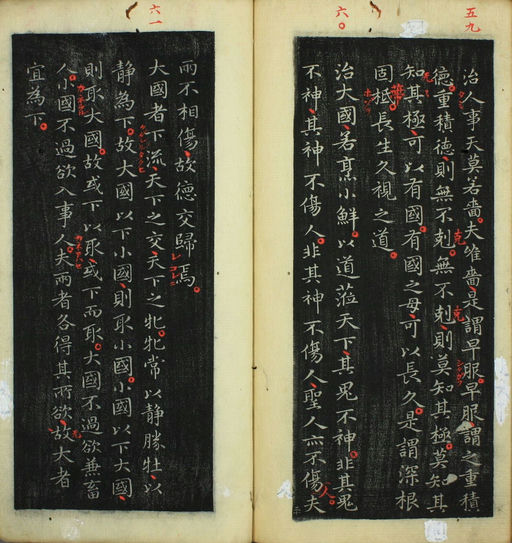 五九
治人事天莫若嗇夫唯嗇是謂早服早服謂之重積
德重積德則無不剋無不剋則莫知其極莫知其
知其極可以有國有國之母可以長久是謂深根
固柢長生久視之道
六〇
治大國若烹小鮮以道莅天下其鬼不神非其鬼
不神其神不傷人非其神不傷人聖人亦不傷夫
六一
兩不相傷故德交歸焉
大國者下流天下之交天下之牝牝常以静勝牡以
静為下故大國以下小國則取小國小國以下大國
則取大國故或下以取或下而取大國不過欲兼畜
人小國不過欲入事人夫兩者各得其所欲故大者
宜為下